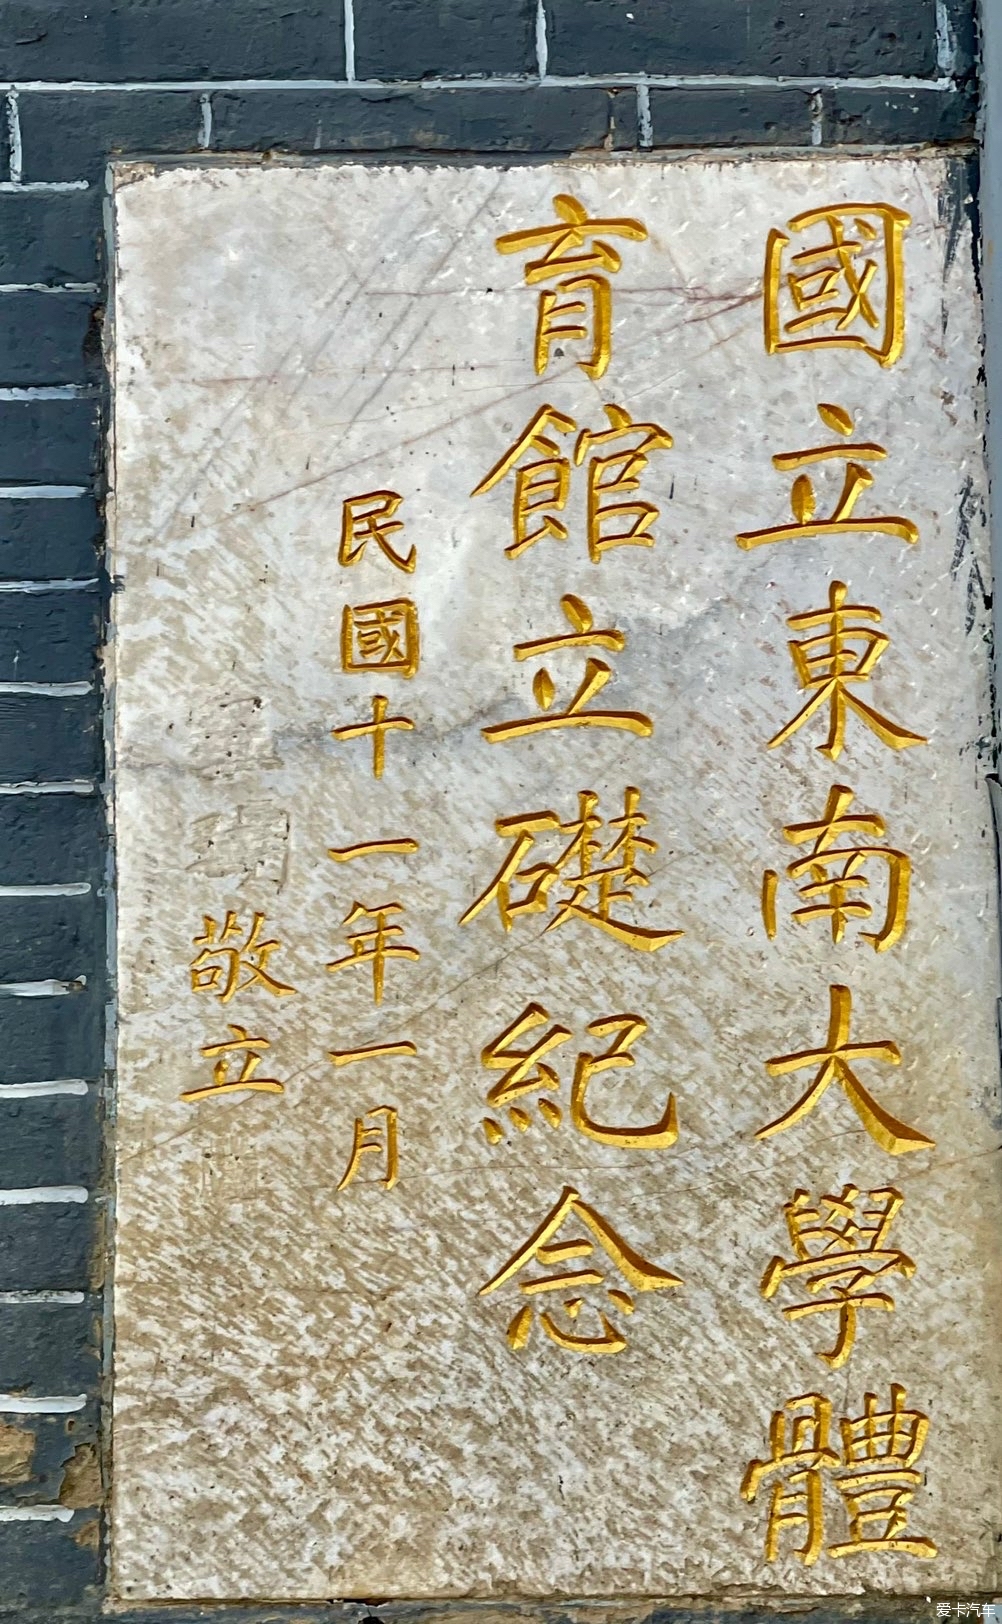 國立東南大學體
育館立礎紀念
民國十一年一月
敬立
爱卡汽车